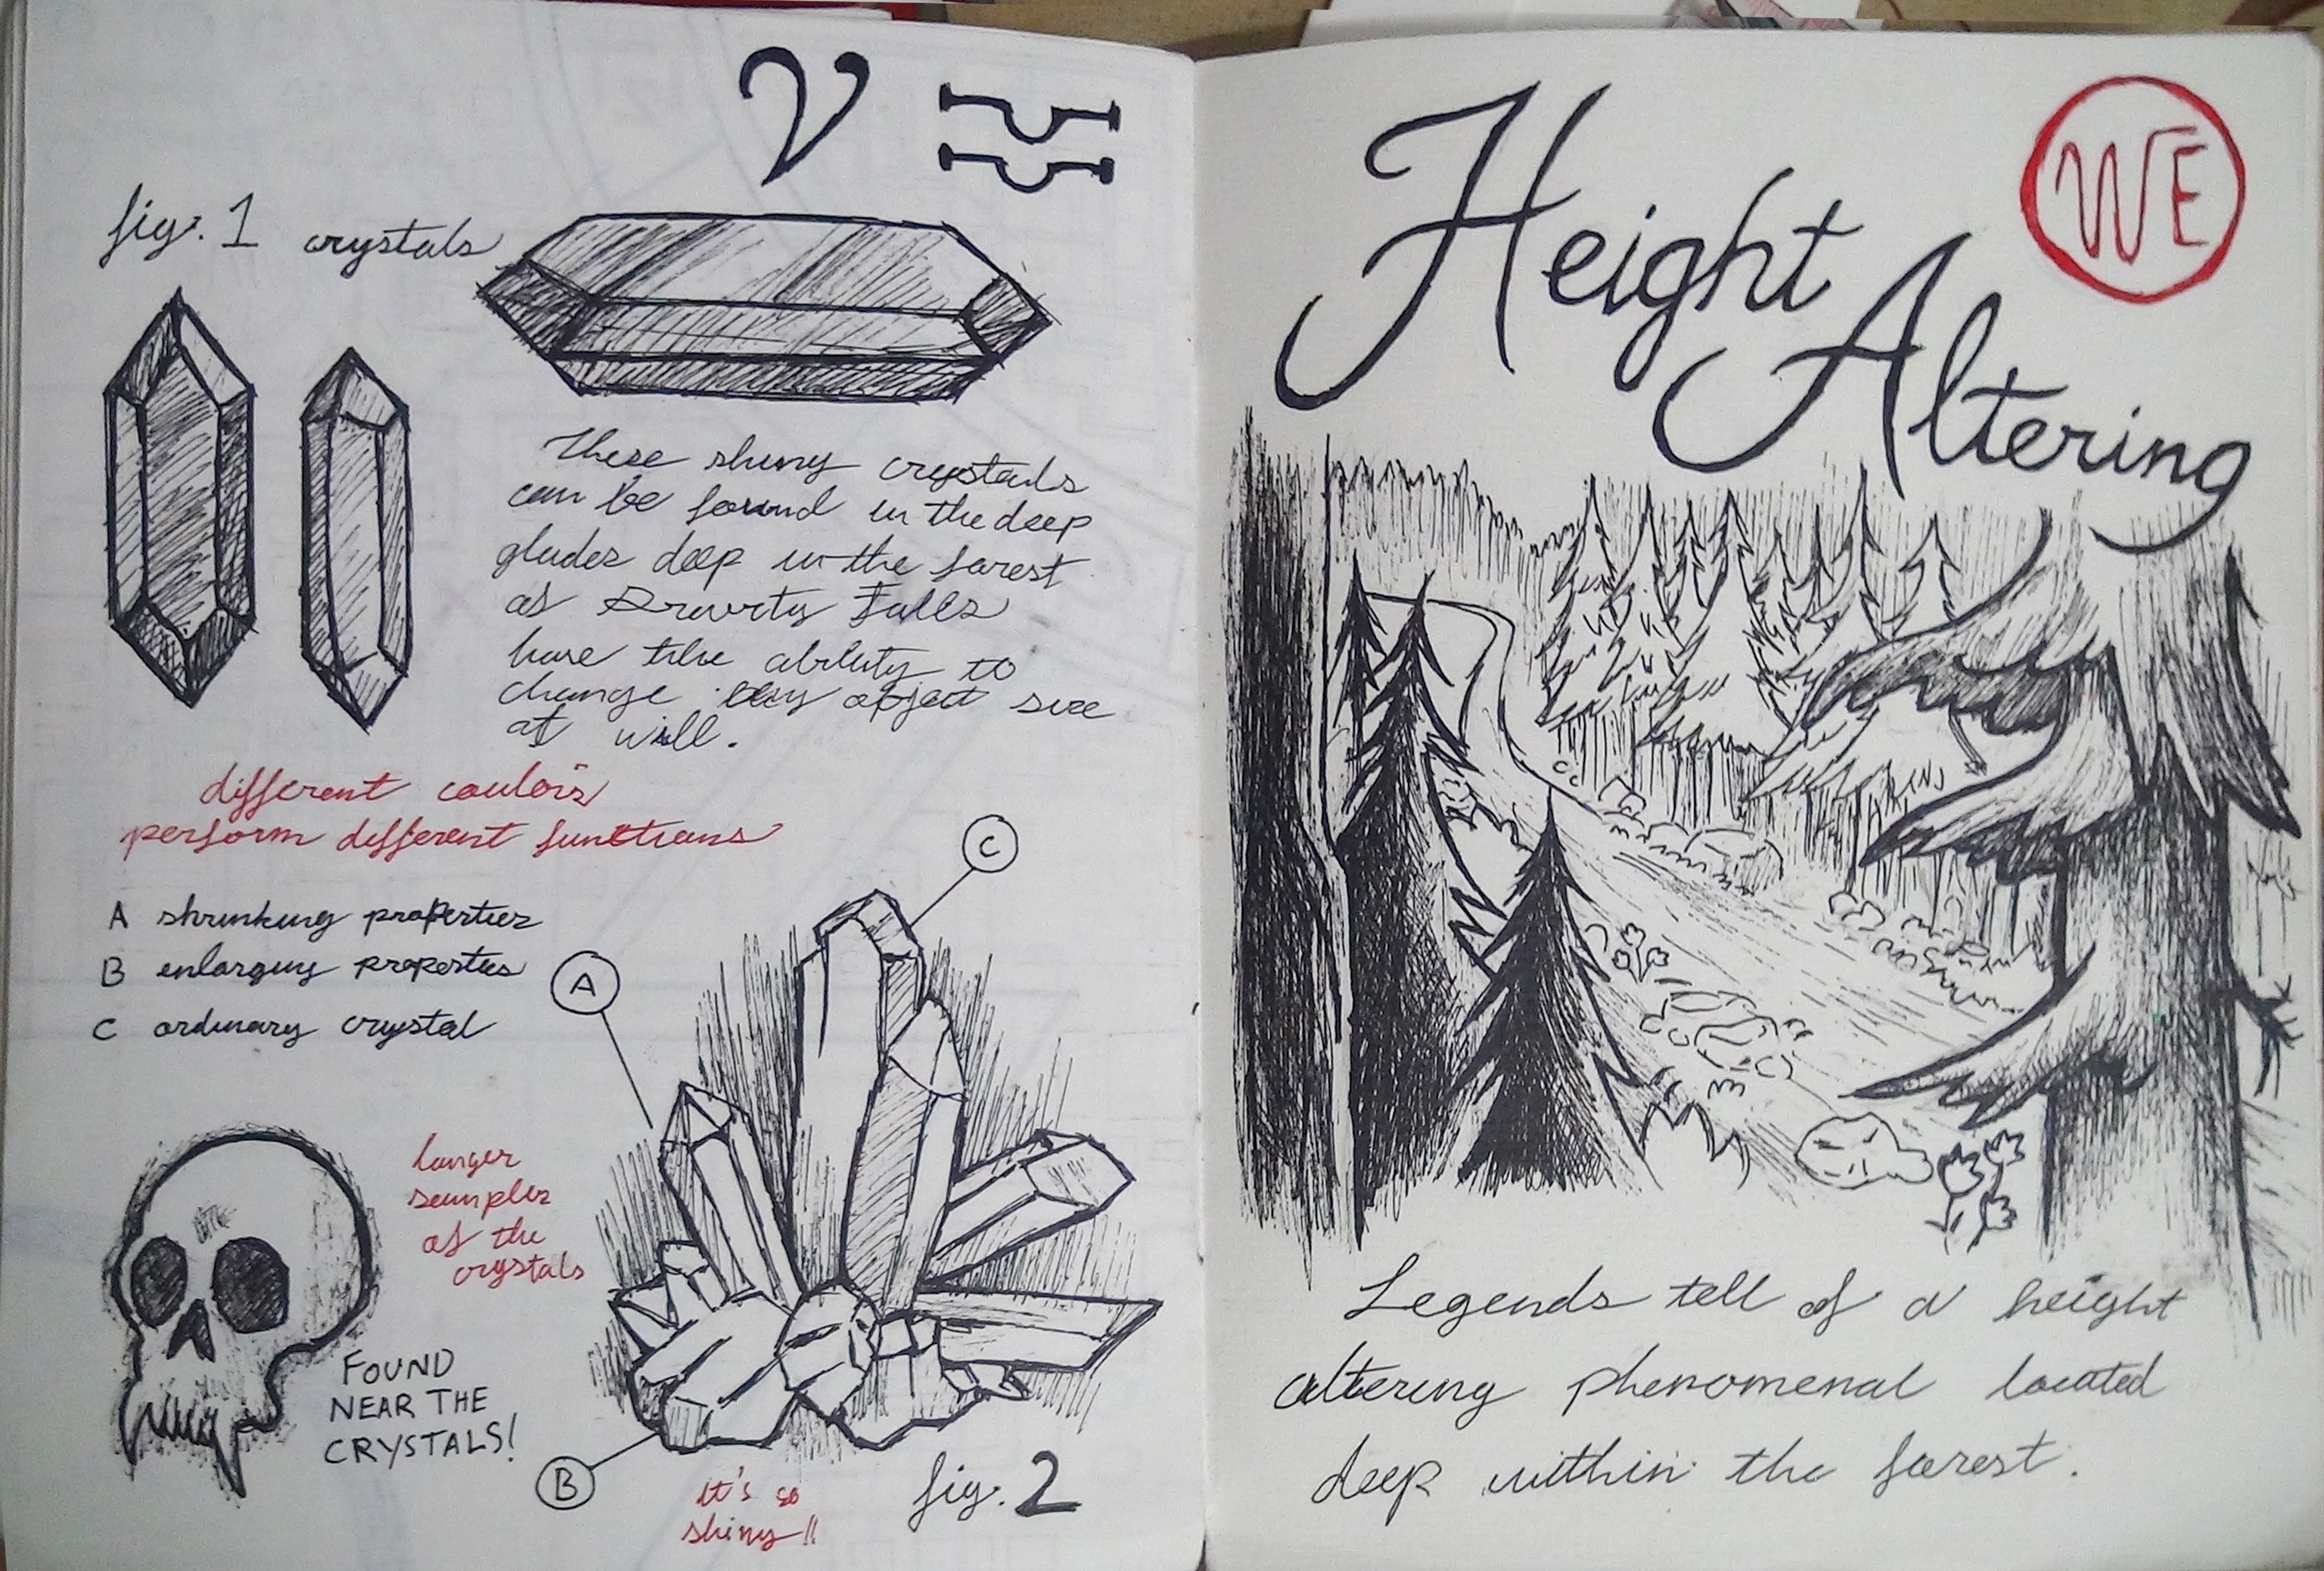 fig. 1 crystals
These shiny crystals
can be found in the deep
glades deep in the forest
of Gravity Falls
have the ability to
change any object size
at will.
different coulors
perform different functions
A shrinking properties
B enlarging properties
C ordinary crystal
C
A
B
larger
samples
of the
crystals
FOUND
NEAR THE
CRYSTALS!
it's so
shiny!!
fig. 2
Height
Altering
WE
Legends tell of a height
altering phenomenal located
deep within the forest.